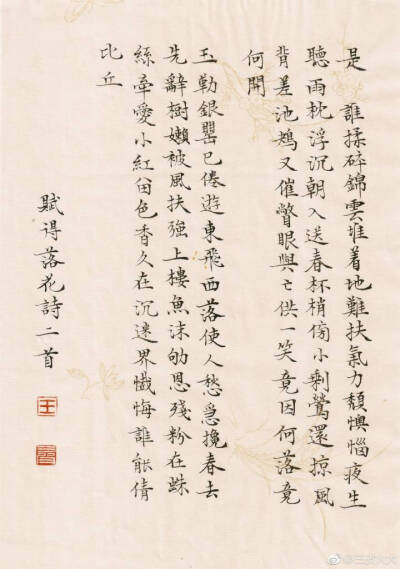 是誰揉碎錦雲堆着地難扶氣力頹懊惱夜生
聽雨枕浮沉朝入送春杯梢傍小剩鶯還掠風
背差池又催瞥眼興亡供一笑竟因何落竟
何開
玉勒銀罌已倦遊東飛西落使人愁急挽春去
先辭樹嬾被風扶強上樓魚沫恩殘粉在蛛
絲牽愛小紅留色香久在沉迷界懺悔誰能倩
比丘
賦得落花詩二首
王